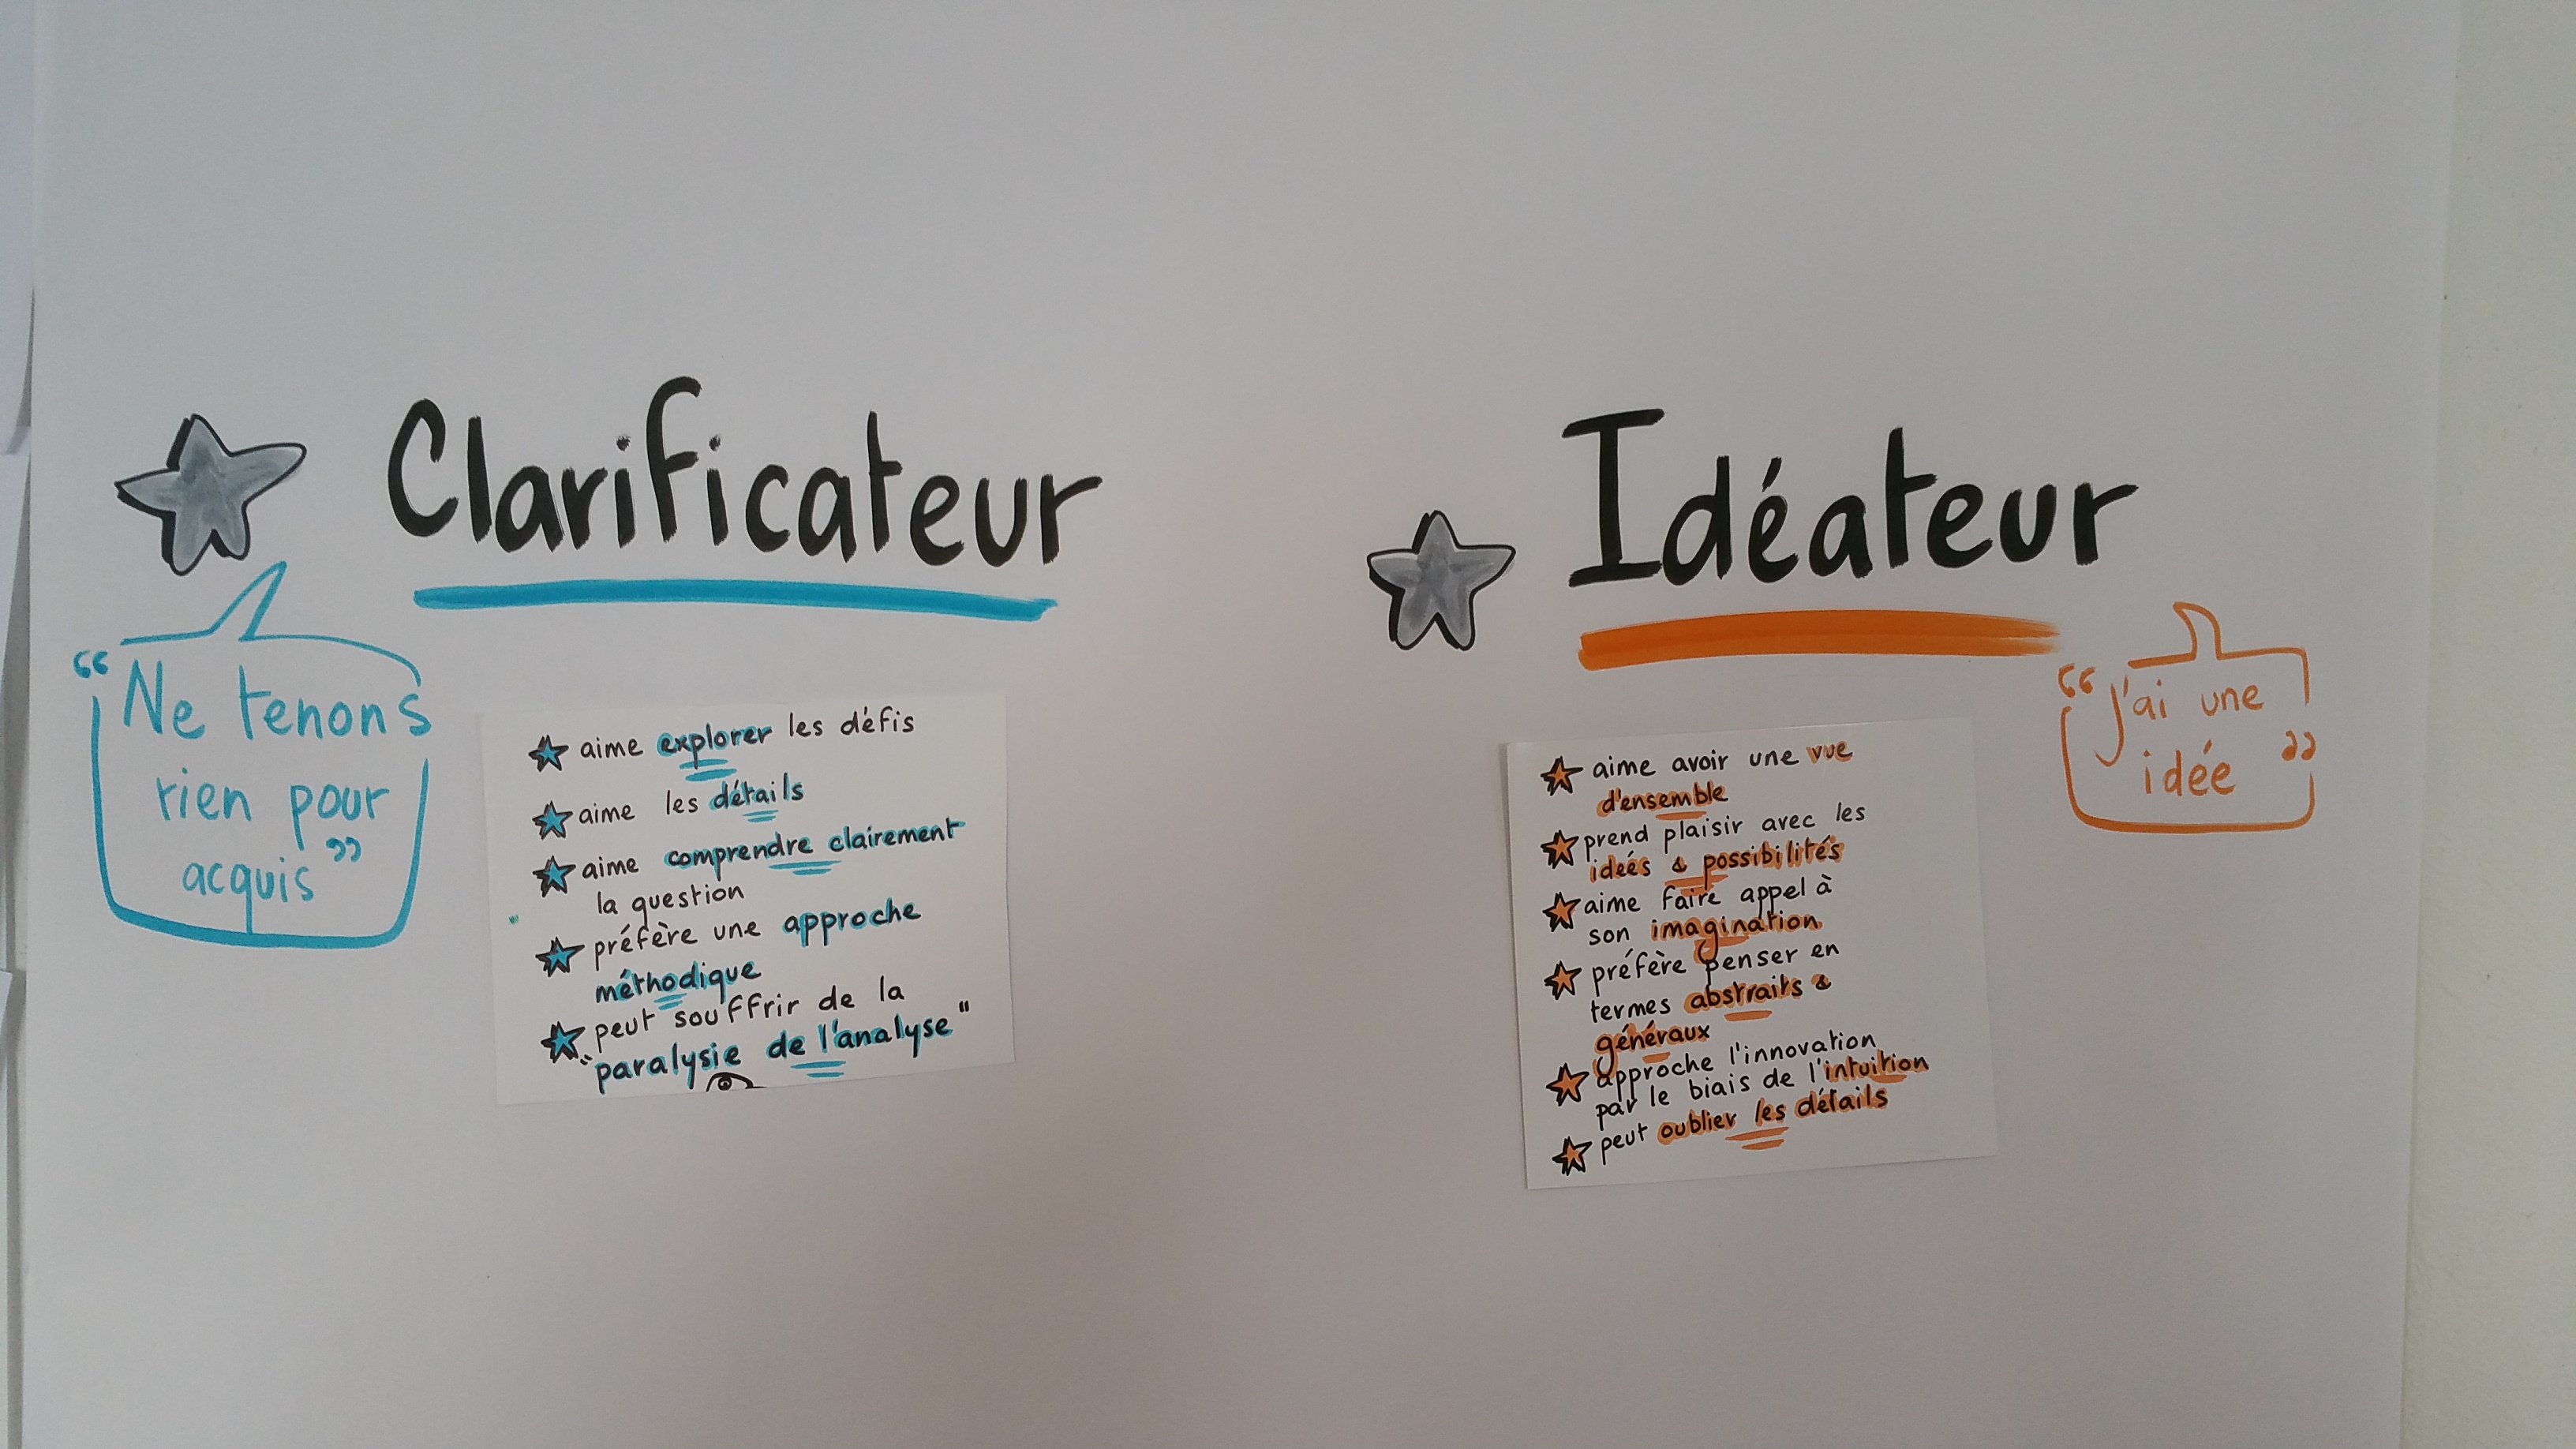 Clarificateur
“ Ne tenons
rien pour
acquis ”
aime explorer les défis
aime les détails
aime comprendre clairement
la question
préfère une approche
méthodique
peut souffrir de la
"paralysie de l'analyse"
Idéateur
“ J'ai une
idée ”
aime avoir une vue
d'ensemble
prend plaisir avec les
ideés & possibilités
aime faire appel à
son imagination
préfère penser en
termes abstraits &
généraux
approche l'innovation
par le biais de l'intuition
peut oublier les détails